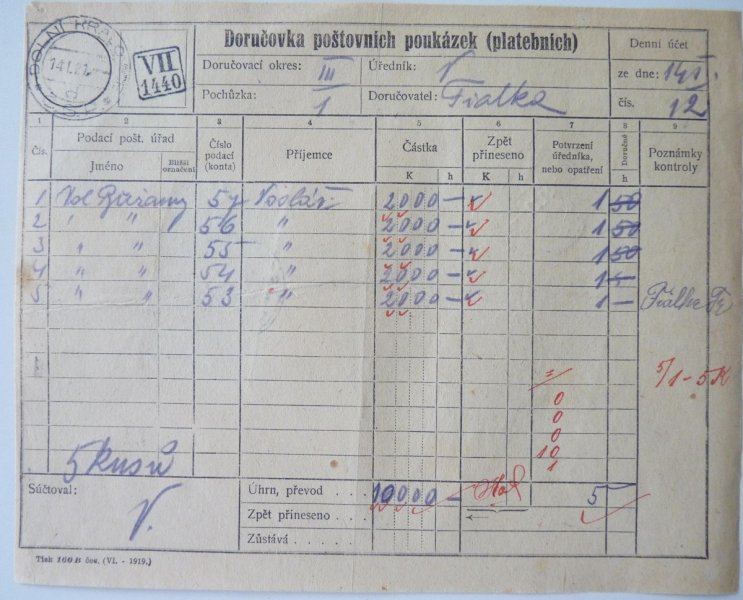 DOLNÍ KRALO
14.I.21
VII
1440
Doručovka poštovních poukázek (platebních)
Denní účet
Doručovací okres: III
Úředník: V
ze dne: 14/I
Pochůzka: 1
Doručovatel: Fialka
čís. 12
1 2 3 4 5 6 7 8 9
Čís.
Podací pošt. úřad
Jméno
Bližší označení
Číslo podací (konta)
Příjemce
Částka
K h
Zpět přineseno
K h
Potvrzení úředníka, nebo opatření
Doručné
h
Poznámky kontroly
1 57 2000 — 1 50
2 " " 56 " 2000 — 1 50
3 " " 55 " 2000 — 1 50
4 " " 54 " 2000 — 1 —
5 " " 53 " 2000 — 1 — Fialka Fr
5/1 - 5 K
0
0
0
10
1
5 kusů
Súčtoval: V.
Úhrn, převod . . . 10000 — 5
Zpět přineseno . . .
Zůstává . . .
Tisk 160 B čes. (VI. - 1919.)